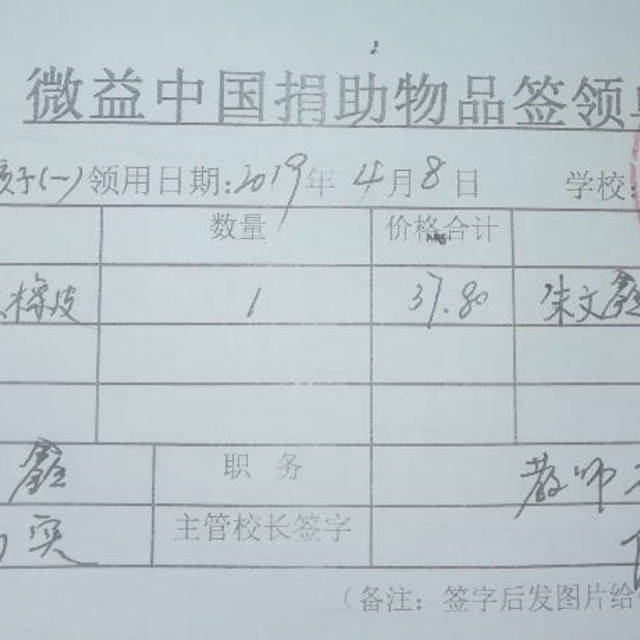 微益中国捐助物品签领单
孩子(一)领用日期:2019年4月8日 学校:
数量 价格合计
橡皮 1 37.80 朱文鑫
鑫 职 务 教师
实 主管校长签字
(备注:签字后发图片给